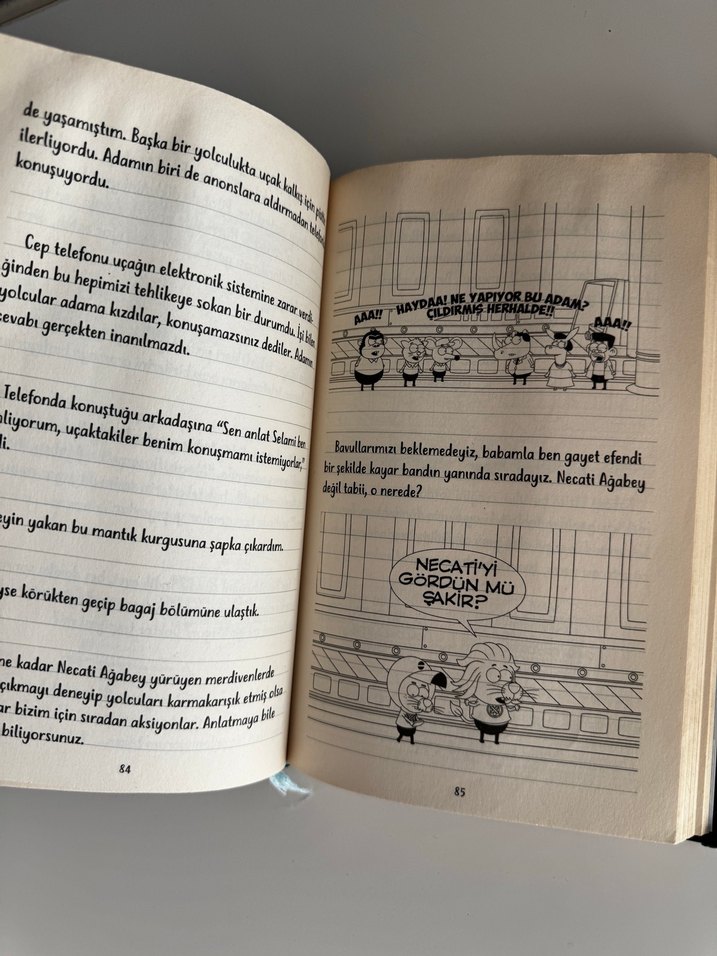 de yaşamıştım. Başka bir yolculukta uçak kalkış için
ilerliyordu. Adamın biri de anonslara aldırmadan
konuşuyordu.
Cep telefonu uçağın elektronik sistemine zarar
ğinden bu hepimizi tehlikeye sokan bir durumdu. İşi bilen
yolcular adama kızdılar, konuşamazsınız dediler. Adamın
cevabı gerçekten inanılmazdı.
Telefonda konuştuğu arkadaşına “Sen anlat Selami ben
nliyorum, uçaktakiler benim konuşmamı istemiyorlar,”
li.
eyin yakan bu mantık kurgusuna şapka çıkardım.
yse körükten geçip bagaj bölümüne ulaştık.
ne kadar Necati Ağabey yürüyen merdivenlerde
çıkmayı deneyip yolcuları karmakarışık etmiş olsa
ar bizim için sıradan aksiyonlar. Anlatmaya bile
biliyorsunuz.
84
AAA!!
HAYDAA! NE YAPIYOR BU ADAM?
ÇILDIRMIŞ HERHALDE!!
AAA!!
Bavullarımızı beklemedeyiz, babamla ben gayet efendi
bir şekilde kayar bandın yanında sıradayız. Necati Ağabey
değil tabii, o nerede?
NECATİ'Yİ
GÖRDÜN MÜ
ŞAKİR?
85